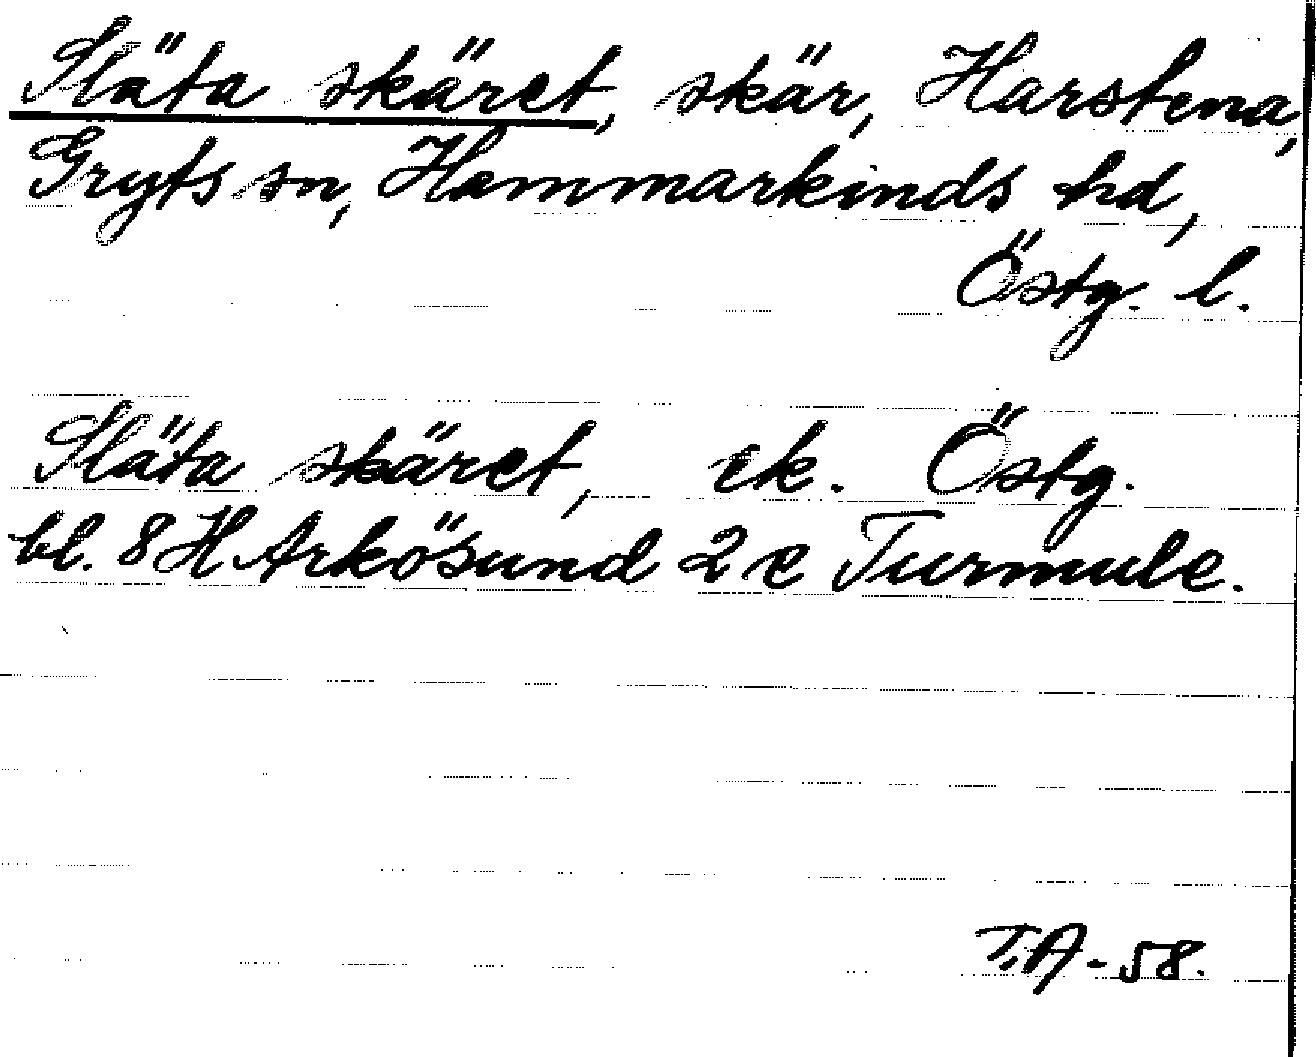 Släta skäret, skär, Harstena,
Gryts sn, Hammarkinds hd,
Östg. l.
Släta skäret, ek. Östg.
bl. 8 H Arkösund 2 c Turmule.
T.A - 58.